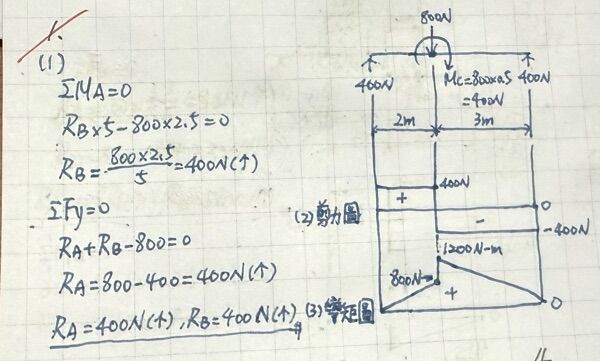 1.
(1)
ΣMA=0
RB×5-800×2.5=0
RB=800×2.5/5=400N(↑)
ΣFy=0
RA+RB-800=0
RA=800-400=400N(↑)
RA=400N(↑), RB=400N(↑)
800N
400N
Mc=800×0.5
=400N
400N
2m
3m
400N
+
(2)剪力圖
0
-
-400N
1200N-m
800N-
+
(3)彎矩圖
0